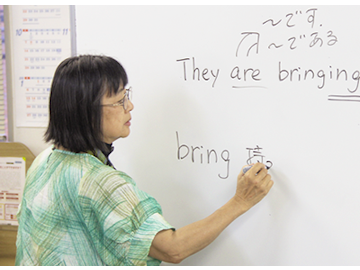 ～です.
～である
They are bringing
bring